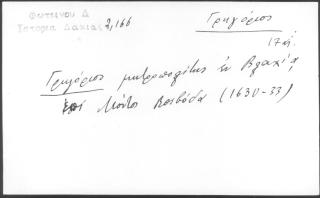 Φωτεινου Δ
Ιστορια Δακιας 2, 166
Γρηγόριος
17 αἰ.
Γρηγόριος μητροπολίτης ἐν Βλαχίᾳ,
ἐπὶ Βοεβόδα (1630-33)